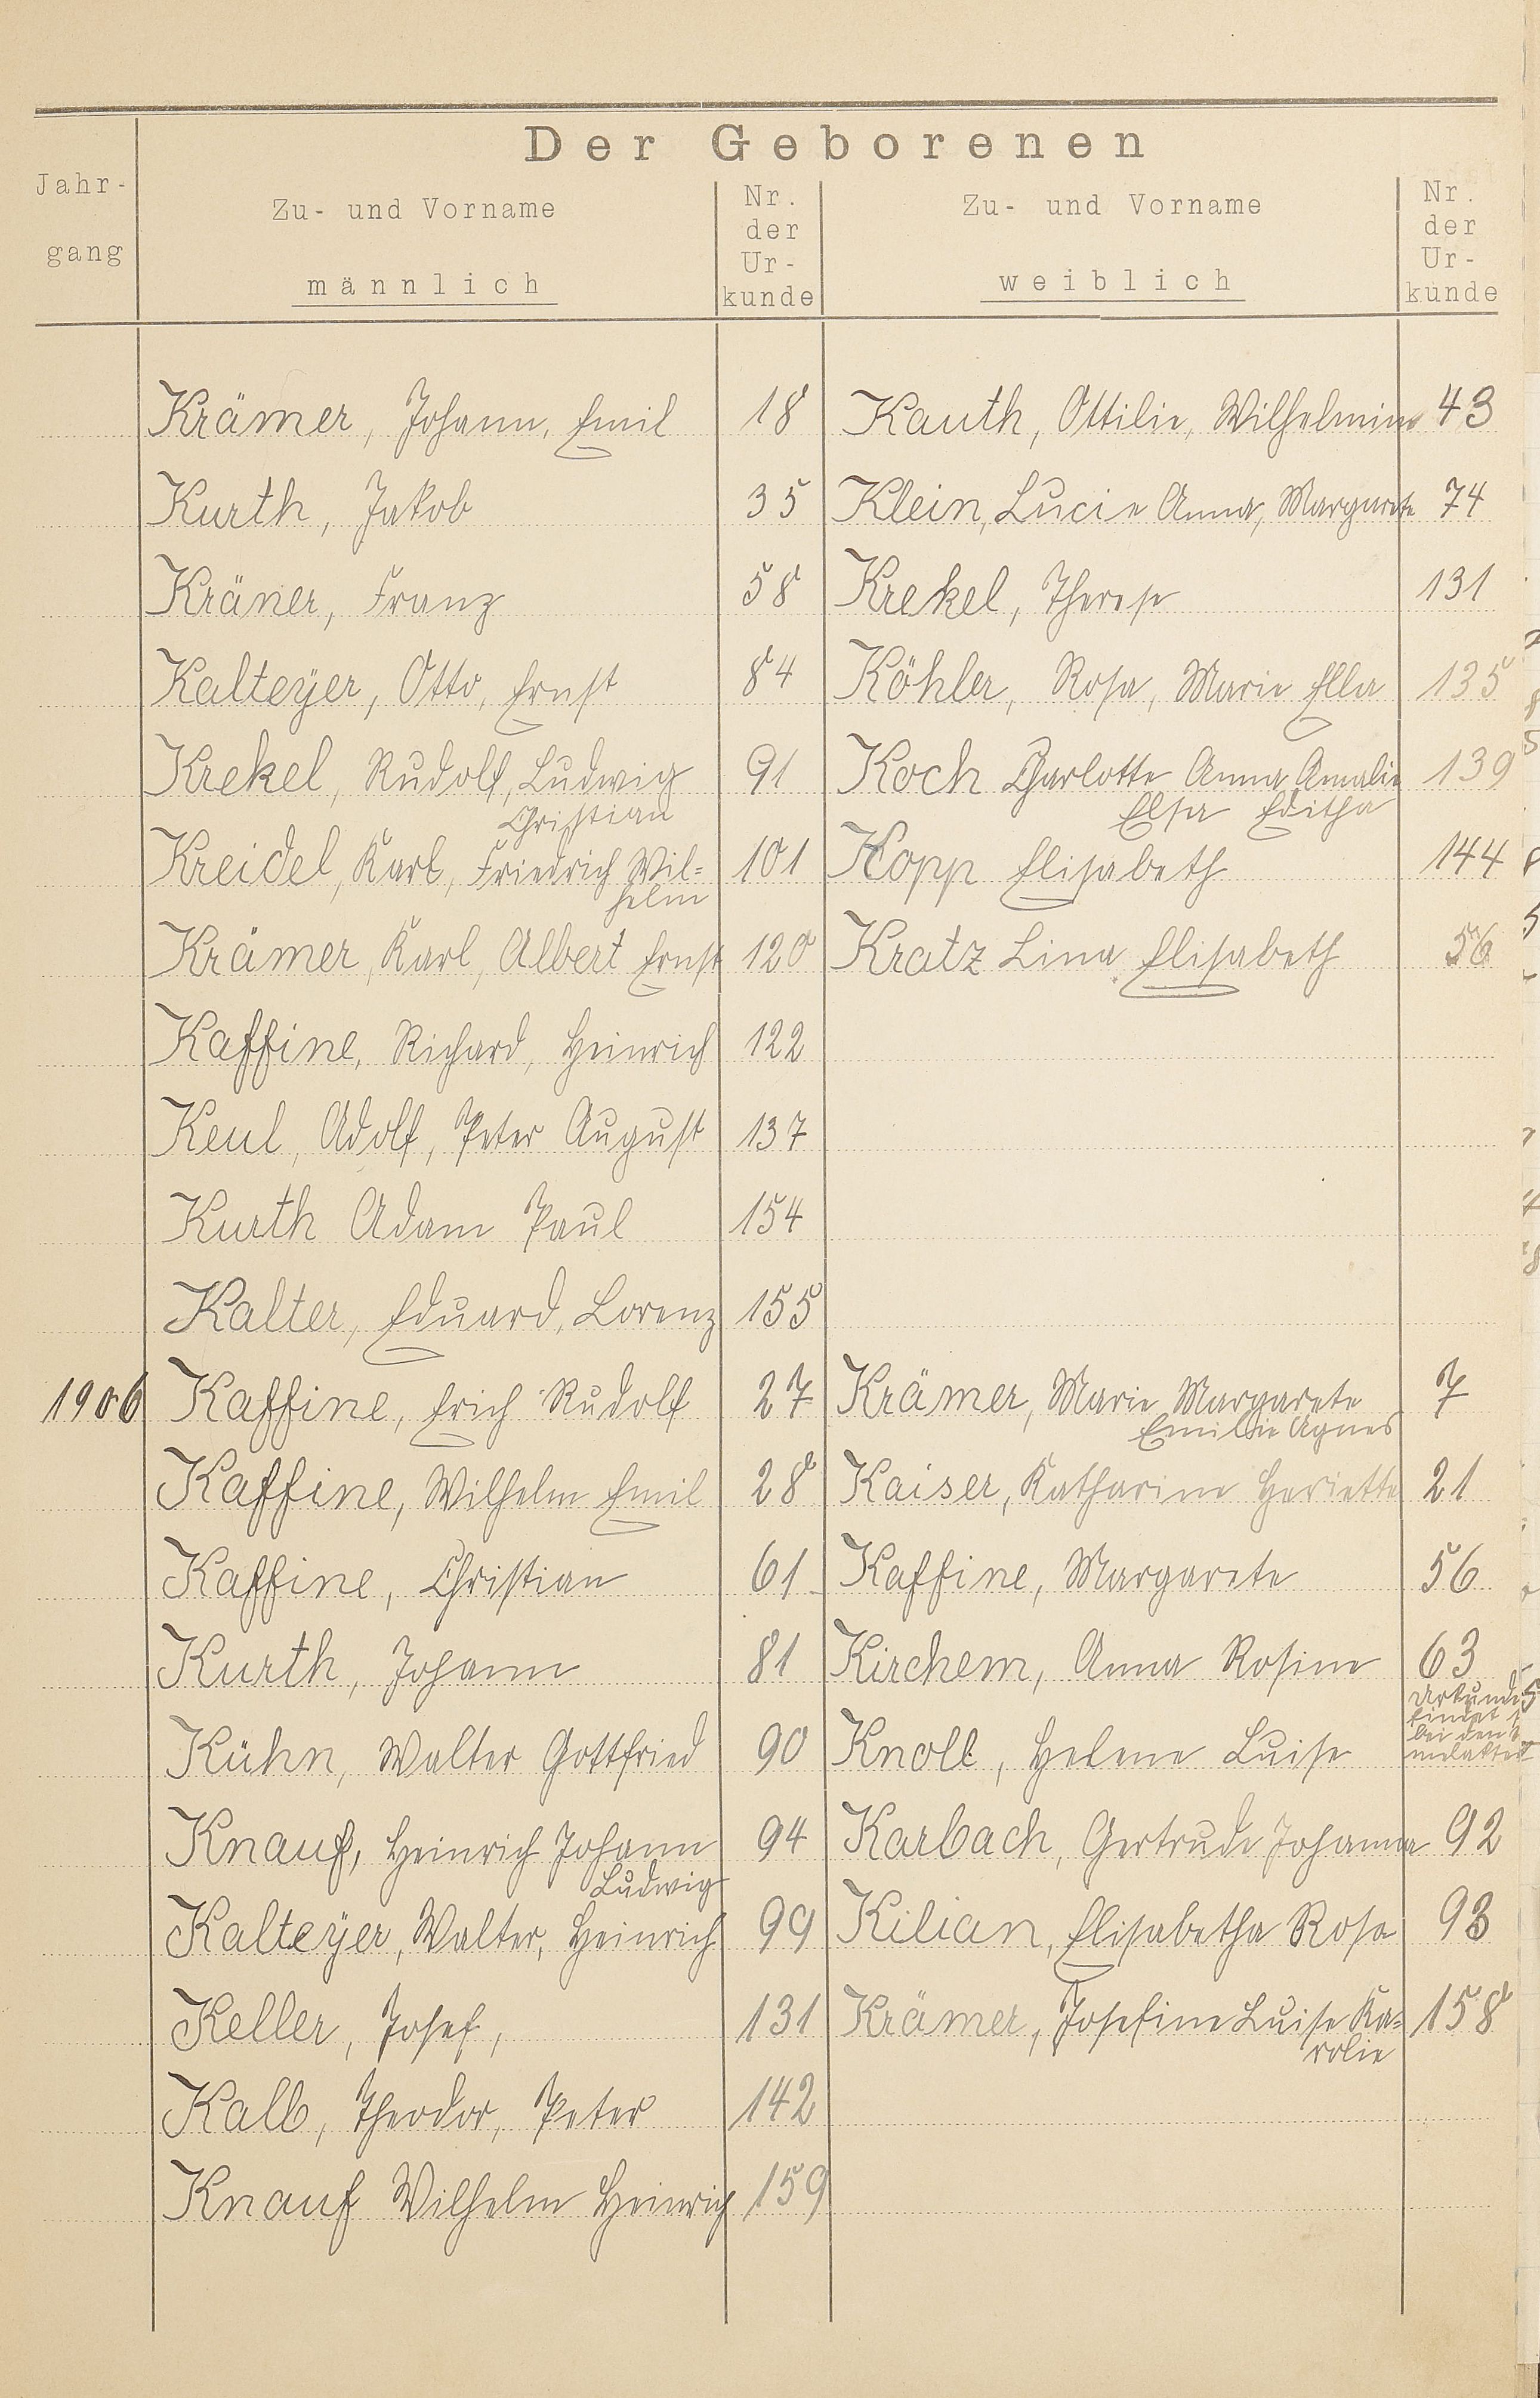 Der Geborenen
Jahr-
gang
Zu- und Vorname
männlich
Nr.
der
Ur-
kunde
Zu- und Vorname
weiblich
Nr.
der
Ur-
kunde
Krämer, Johann, Emil 18 Kauth, Ottilie, Wilhelmine 43
Kurth, Jakob 35 Klein, Lucie Anna, Margarete 74
Kräner, Franz 58 Krekel, Therese 131
Kalteÿer, Otto, Ernst 84 Köhler, Rosa, Marie Ella 135
Krekel, Rudolf, Ludwig 91 Koch Charlotte Anna Amalie 139
Christian Elsa Editha
Kreidel, Karl, Friedrich Wil= 101 Kopp Elisabeth 144
helm
Krämer, Karl, Albert Ernst 120 Kratz Lina Elisabeth 56
Kaffine, Richard, Heinrich 122
Keul, Adolf, Peter August 137
Kurth Adam Paul 154
Kalter, Eduard, Lorenz 155
1906 Kaffine, Erich Rudolf 27 Krämer, Marie Margarete 7
Emilie Agnes
Kaffine, Wilhelm Emil 28 Kaiser, Katharine Heriette 21
Kaffine, Christian 61 Kaffine, Margarete 56
Kurth, Johann 81 Kirchem, Anna Rosine 63
Urkunde
findet
bei den
Kühn, Walter Gottfried 90 Knoll, Helene Luise
Knauf, Heinrich Johann 94 Karbach, Gertrude Johanna 92
Ludwig
Kalteÿer, Walter, Heinrich 99 Kilian, Elisabetha Rosa 93
Keller, Josef, 131 Krämer, Josefine Luise Ka= 158
rolie
Kalb, Theodor, Peter 142
Knauf Wilhelm Heinrich 159